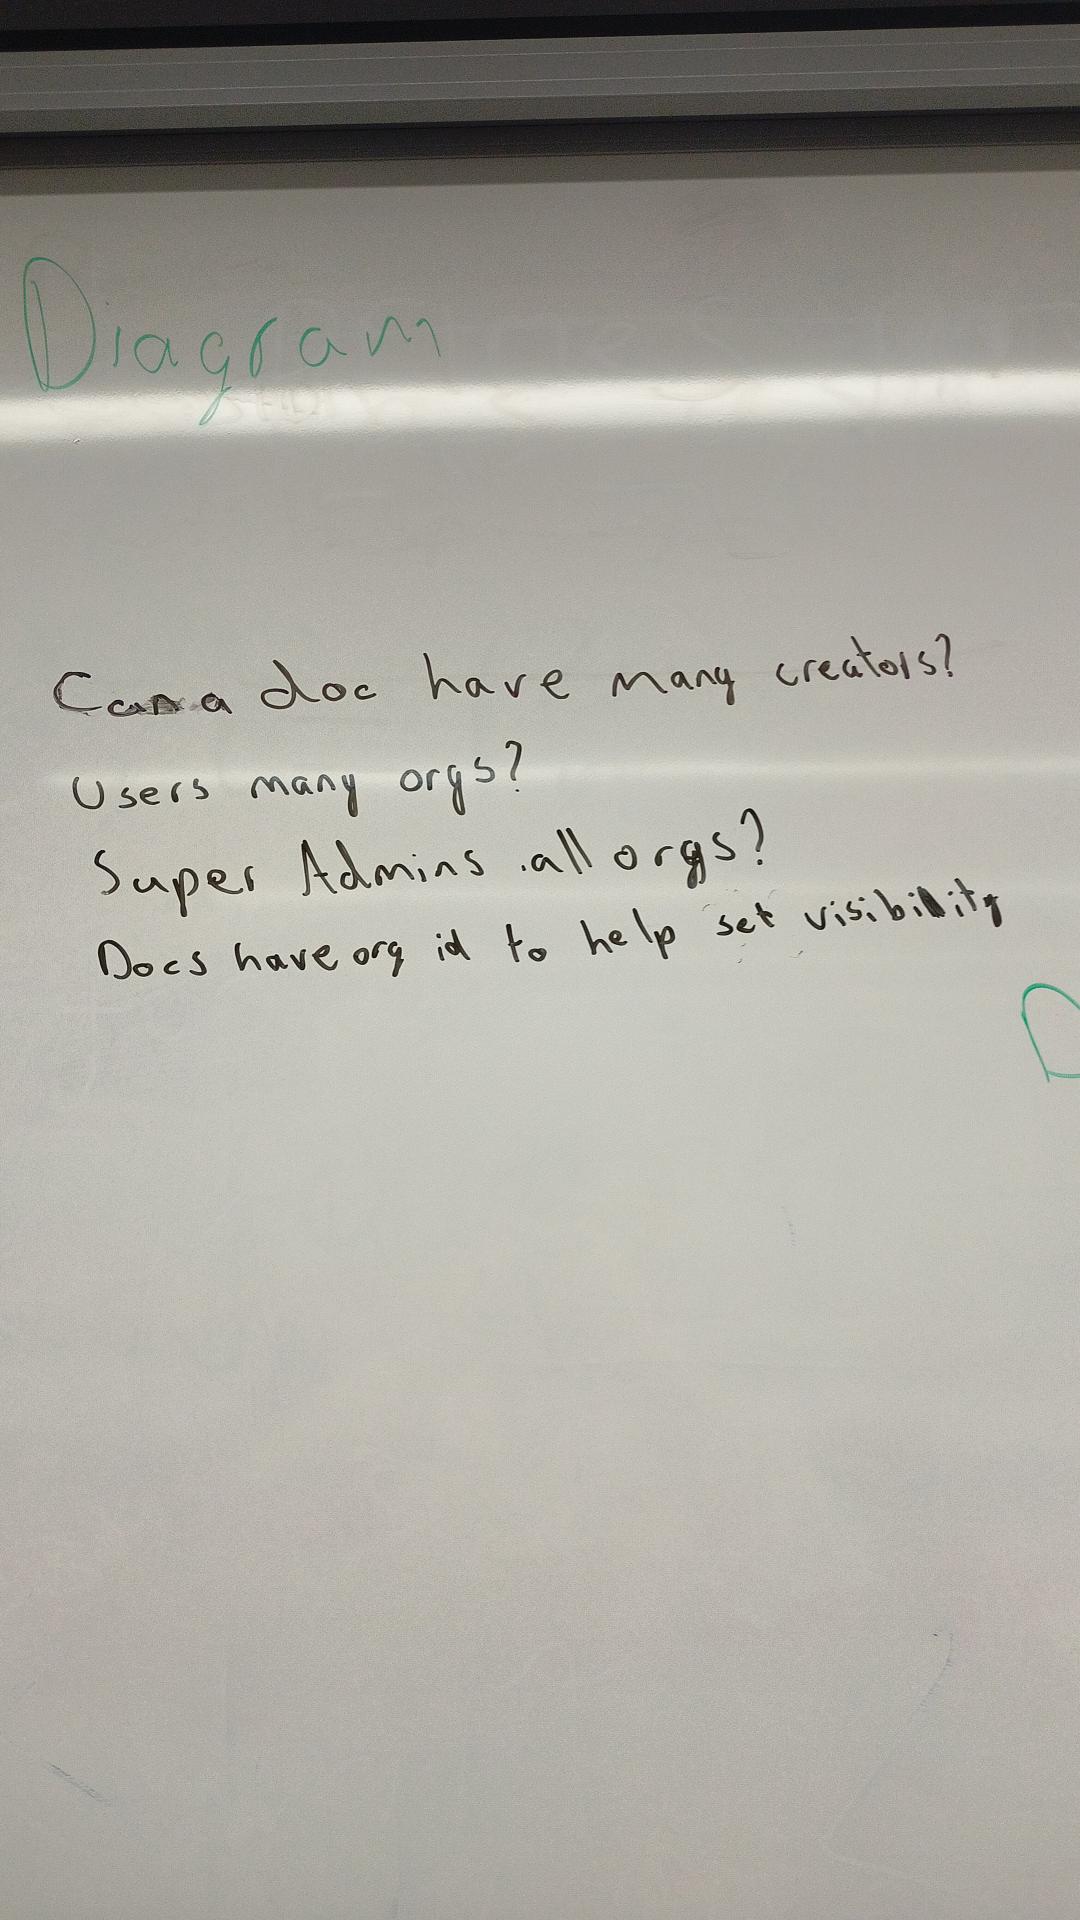 Diagram
Can a doc have many creators?
Users many orgs?
Super Admins all orgs?
Docs have org id to help set visibility